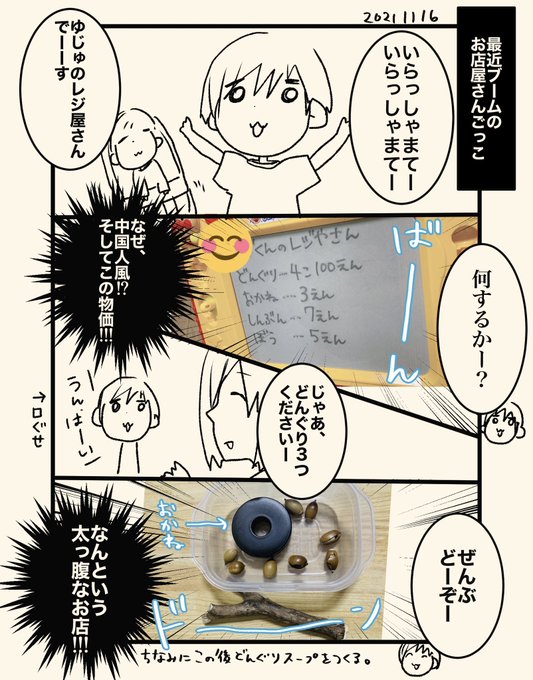 2021 11 16
最近ブームの
お店屋さんごっこ
いらっしゃまてー
いらっしゃまてー
ゆじゅのレジ屋さん
でーーす
何するかー？
ばーん
くんのレジやさん
どんぐり…4こ100えん
おかね…3えん
しんぶん…7えん
ぼう…5えん
なぜ、
中国人風!?
そしてこの物価!!!
じゃあ、
どんぐり３つ
くださいー
うんはーい
→口ぐせ
ぜんぶ
どーぞー
おかね
ドーン
なんという
太っ腹なお店!!!
ちなみにこの後どんぐりスープをつくる。